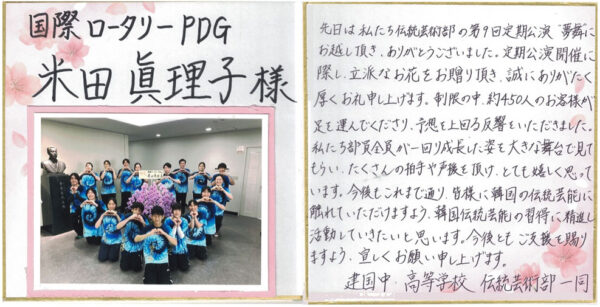 国際ロータリーPDG
米田眞理子様
先日は私たち伝統芸術部の第9回定期公演"夢舞"に
お越し頂き、ありがとうございました。定期公演開催に
際し、立派なお花をお贈り頂き、誠にありがたく
厚くお礼申し上げます。制限の中、約450人のお客様が
足を運んでくださり、予想を上回る反響をいただきました。
私たち部員全員が一回り成長した姿を大きな舞台で見て
もらい、たくさんの拍手や声援を頂け、とても嬉しく思って
います。今後もこれまで通り、皆様に韓国の伝統芸能に
触れていただけますよう、韓国伝統芸能の習得に精進し
活動していきたいと思います。今後とも ご支援を賜り
ますよう、宜しくお願い申し上げます。
建国中・高等学校 伝統芸術部一同